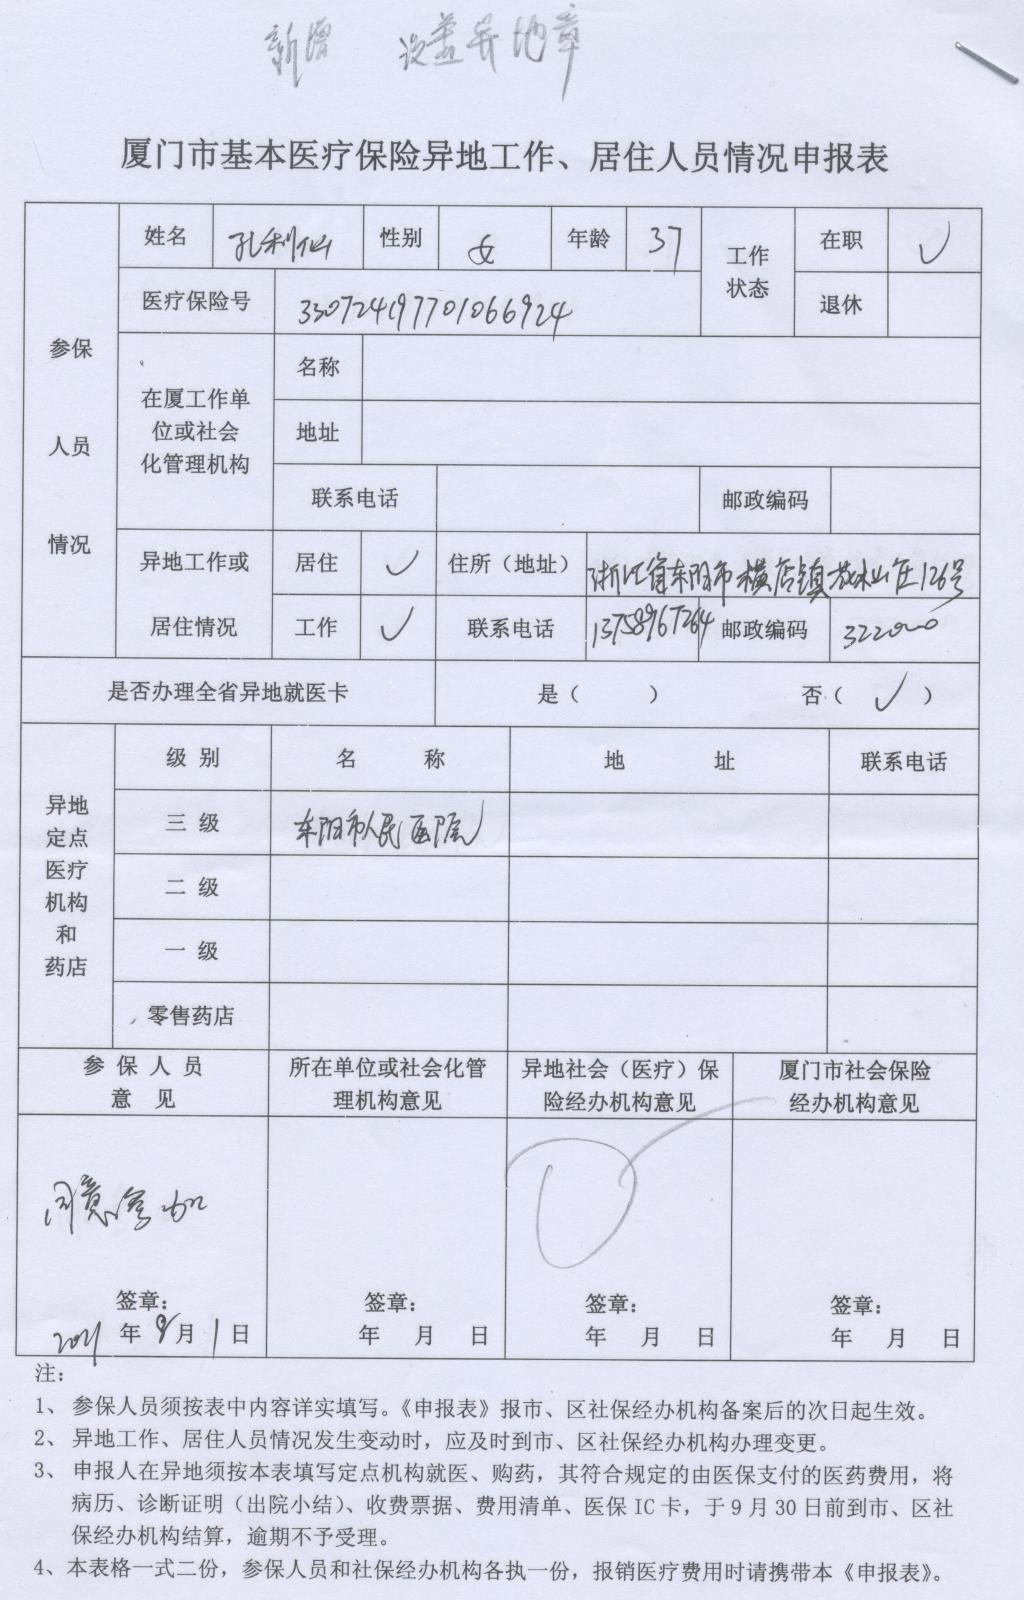 新增 没盖异地章
厦门市基本医疗保险异地工作、居住人员情况申报表
参保人员情况
姓名 孔利仙 性别 女 年龄 37 工作状态 在职 ✓
退休
医疗保险号 330724197701066924
在厦工作单位或社会化管理机构
名称
地址
联系电话 邮政编码
异地工作或居住情况
居住 ✓ 住所（地址） 浙江省东阳市横店镇 山庄126号
工作 ✓ 联系电话 13758967264 邮政编码 322000
是否办理全省异地就医卡 是（ ） 否（ ✓ ）
异地定点医疗机构和药店
级别 名称 地址 联系电话
三级 东阳市人民医院
二级
一级
零售药店
参保人员意见
所在单位或社会化管理机构意见
异地社会（医疗）保险经办机构意见
厦门市社会保险经办机构意见
同意参加
签章： 签章： 签章： 签章：
年9月1日 年 月 日 年 月 日 年 月 日
注：
1、参保人员须按表中内容详实填写。《申报表》报市、区社保经办机构备案后的次日起生效。
2、异地工作、居住人员情况发生变动时，应及时到市、区社保经办机构办理变更。
3、申报人在异地须按本表填写定点机构就医、购药，其符合规定的由医保支付的医药费用，将
病历、诊断证明（出院小结）、收费票据、费用清单、医保IC卡，于9月30日前到市、区社
保经办机构结算，逾期不予受理。
4、本表格一式二份，参保人员和社保经办机构各执一份，报销医疗费用时请携带本《申报表》。